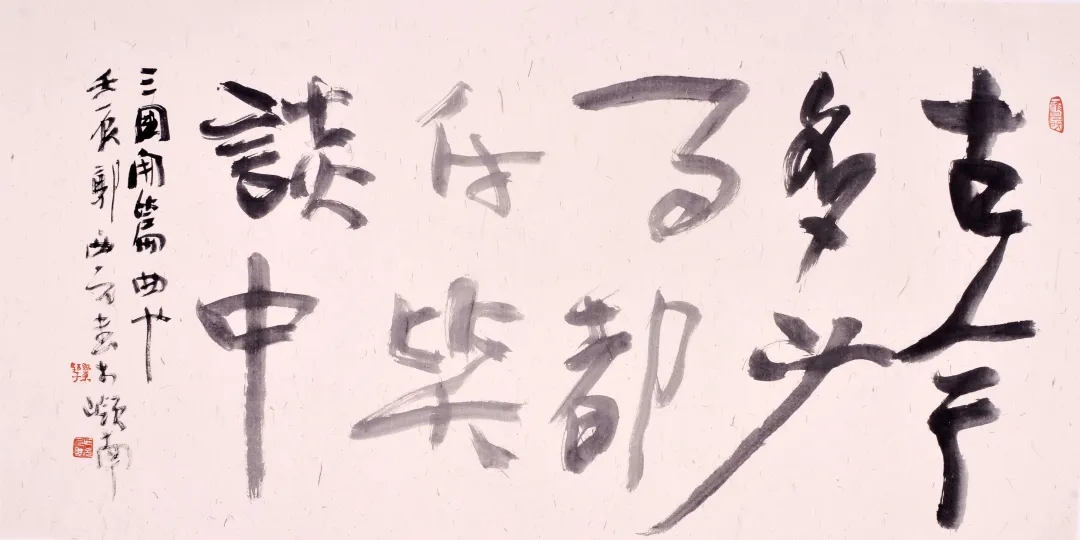 古今
多少
事都
付笑
談中
三國開篇曲
壬辰郭西書於嶺南